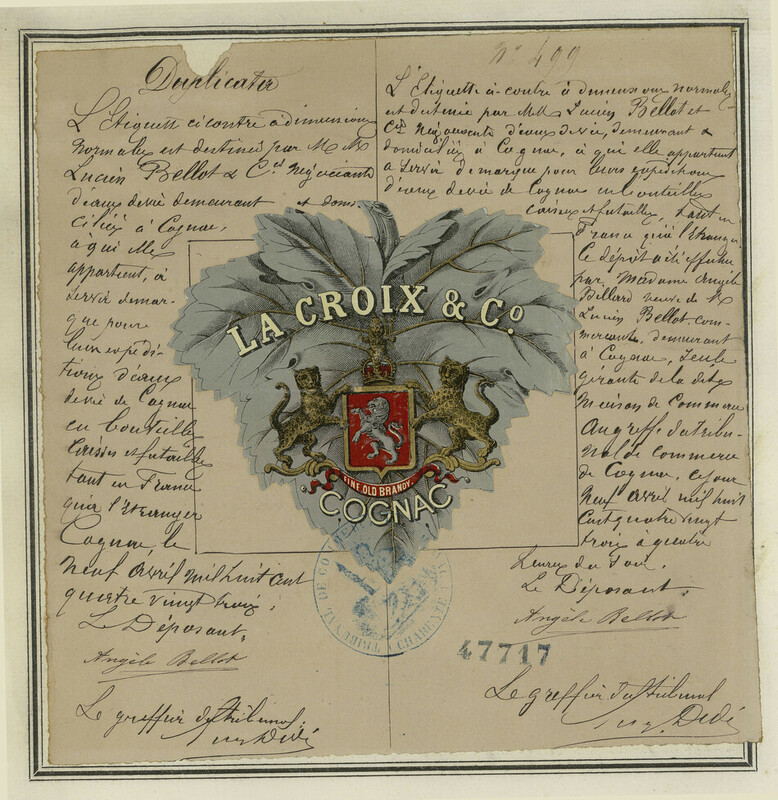 Duplicata
L'Etiquette ci contre à dimensions
normales est destinée par M M
Lucien Bellot & Cie Négociants
d'eaux de vie demeurant et domi
ciliés à Cognac,
à qui elle
appartient, à
servir de mar-
que pour
leurs expédi-
tions d'eaux
de vie de Cognac
en bouteilles
caisses et futailles
tant en France
qu'à l'Etranger
Cognac, le
neuf avril mil huit cent
quatre vingt trois.
Le Déposant,
Angèle Bellot
Le greffier du tribunal
N° 499
L'Etiquette ci-contre à dimensions normales
est destinée par MM Lucien Bellot et
Cie Négociants d'eaux de vie, demeurant &
domiciliés à Cognac, à qui elle appartient
à servir de marque pour leurs expéditions
d'eaux de vie de Cognac en bouteilles
caisses et futailles, tant en
France qu'à l'Etranger
Ce dépôt a été effectué
par Madame Angèle
Billard veuve de M
Lucien Bellot, com-
mercante, demeurant
à Cognac, seule
gérante de la dite
maison de Commerce
au greffe du tribu-
nal de commerce
de Cognac, ce jour
neuf avril mil huit
cent quatre vingt
trois à quatre
heures du soir.
Le Déposant,
Angèle Bellot
Le greffier du tribunal
LA CROIX & Co.
FINE OLD BRANDY.
COGNAC
TRIBUNAL DE COMMERCE
CHARENTE
47717